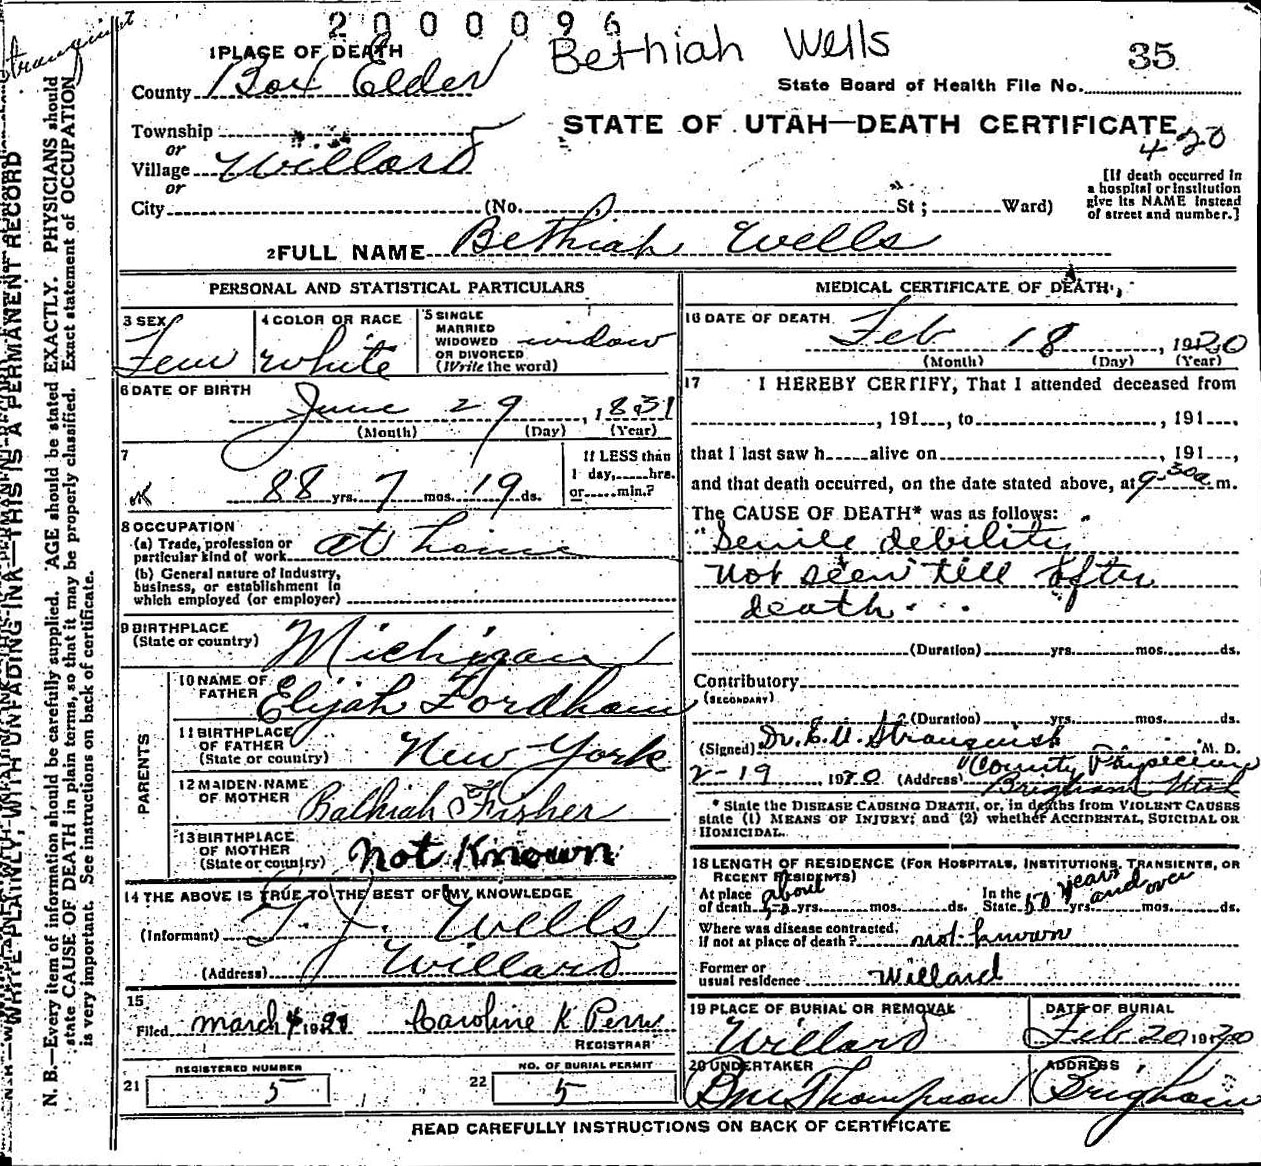 2000096
Bethiah Wells
35
1 PLACE OF DEATH
County Box Elder
State Board of Health File No.
Township
STATE OF UTAH—DEATH CERTIFICATE
420
or
Village Willard
or
City (No. St; Ward)
[If death occurred in
a hospital or institution
give its NAME instead
of street and number.]
2 FULL NAME Bethiah Wells
PERSONAL AND STATISTICAL PARTICULARS
3 SEX
Fem
4 COLOR OR RACE
white
5 SINGLE
MARRIED
WIDOWED
OR DIVORCED
(Write the word)
widow
6 DATE OF BIRTH
June 29, 1831
(Month) (Day) (Year)
7
88 yrs. 7 mos. 19 ds.
If LESS than
1 day, hrs.
or min.?
8 OCCUPATION
(a) Trade, profession or
particular kind of work at home
(b) General nature of Industry,
business, or establishment in
which employed (or employer)
9 BIRTHPLACE
(State or country) Michigan
PARENTS
10 NAME OF
FATHER Elijah Fordham
11 BIRTHPLACE
OF FATHER
(State or country) New York
12 MAIDEN NAME
OF MOTHER Balhiah Fisher
13 BIRTHPLACE
OF MOTHER
(State or country) Not Known
14 THE ABOVE IS TRUE TO THE BEST OF MY KNOWLEDGE
(Informant) T. J. Wells
(Address) Willard
15
Filed March 4 1920 Caroline K Perry
REGISTRAR
REGISTERED NUMBER
21 5
NO. OF BURIAL PERMIT
22 5
MEDICAL CERTIFICATE OF DEATH
16 DATE OF DEATH
Feb 18, 1920
(Month) (Day) (Year)
17 I HEREBY CERTIFY, That I attended deceased from
, 191 , to , 191 ,
that I last saw h alive on , 191 ,
and that death occurred, on the date stated above, at 9-30a m.
The CAUSE OF DEATH* was as follows:
"Senile debility"
Not seen till after
death
(Duration) yrs. mos. ds.
Contributory
(SECONDARY)
(Duration) yrs. mos. ds.
(Signed) Dr. E. U. Stranquist M. D.
"County Physician
2-19 1920 (Address) Brigham Utah
* State the DISEASE CAUSING DEATH, or, in deaths from VIOLENT CAUSES
state (1) MEANS OF INJURY; and (2) whether ACCIDENTAL, SUICIDAL OR
HOMICIDAL.
18 LENGTH OF RESIDENCE (FOR HOSPITALS, INSTITUTIONS, TRANSIENTS, OR
RECENT RESIDENTS)
At place about
of death yrs. mos. ds.
In the
State 50 yrs. mos. ds.
years and over
Where was disease contracted,
if not at place of death? not known
Former or
usual residence Willard
19 PLACE OF BURIAL OR REMOVAL
Willard
DATE OF BURIAL
Feb 20 1920
20 UNDERTAKER
ADDRESS
Thompson
Brigham
READ CAREFULLY INSTRUCTIONS ON BACK OF CERTIFICATE
WRITE PLAINLY, WITH UNFADING INK—THIS IS A PERMANENT RECORD
N. B.—Every item of information should be carefully supplied. AGE should be stated EXACTLY. PHYSICIANS should
state CAUSE OF DEATH in plain terms, so that it may be properly classified. Exact statement of OCCUPATION
is very important. See instructions on back of certificate.